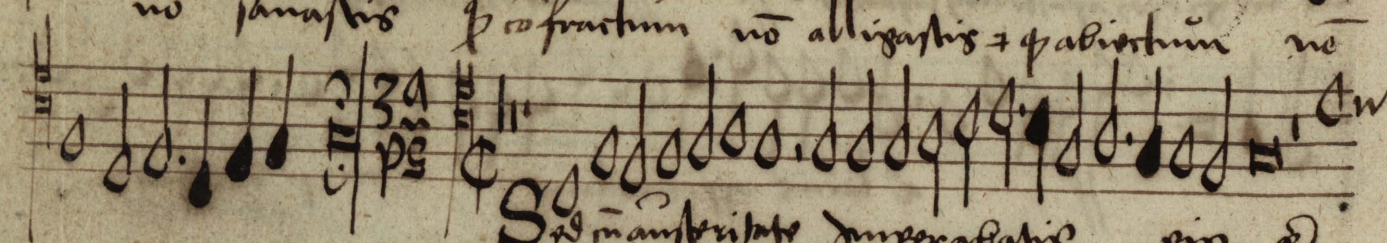 nō sanastis qꝫ cōfractum nō alligastis ⁊ qꝫ abiectum nō
3a
ps
Sed cū austeritate Imperabatis eis